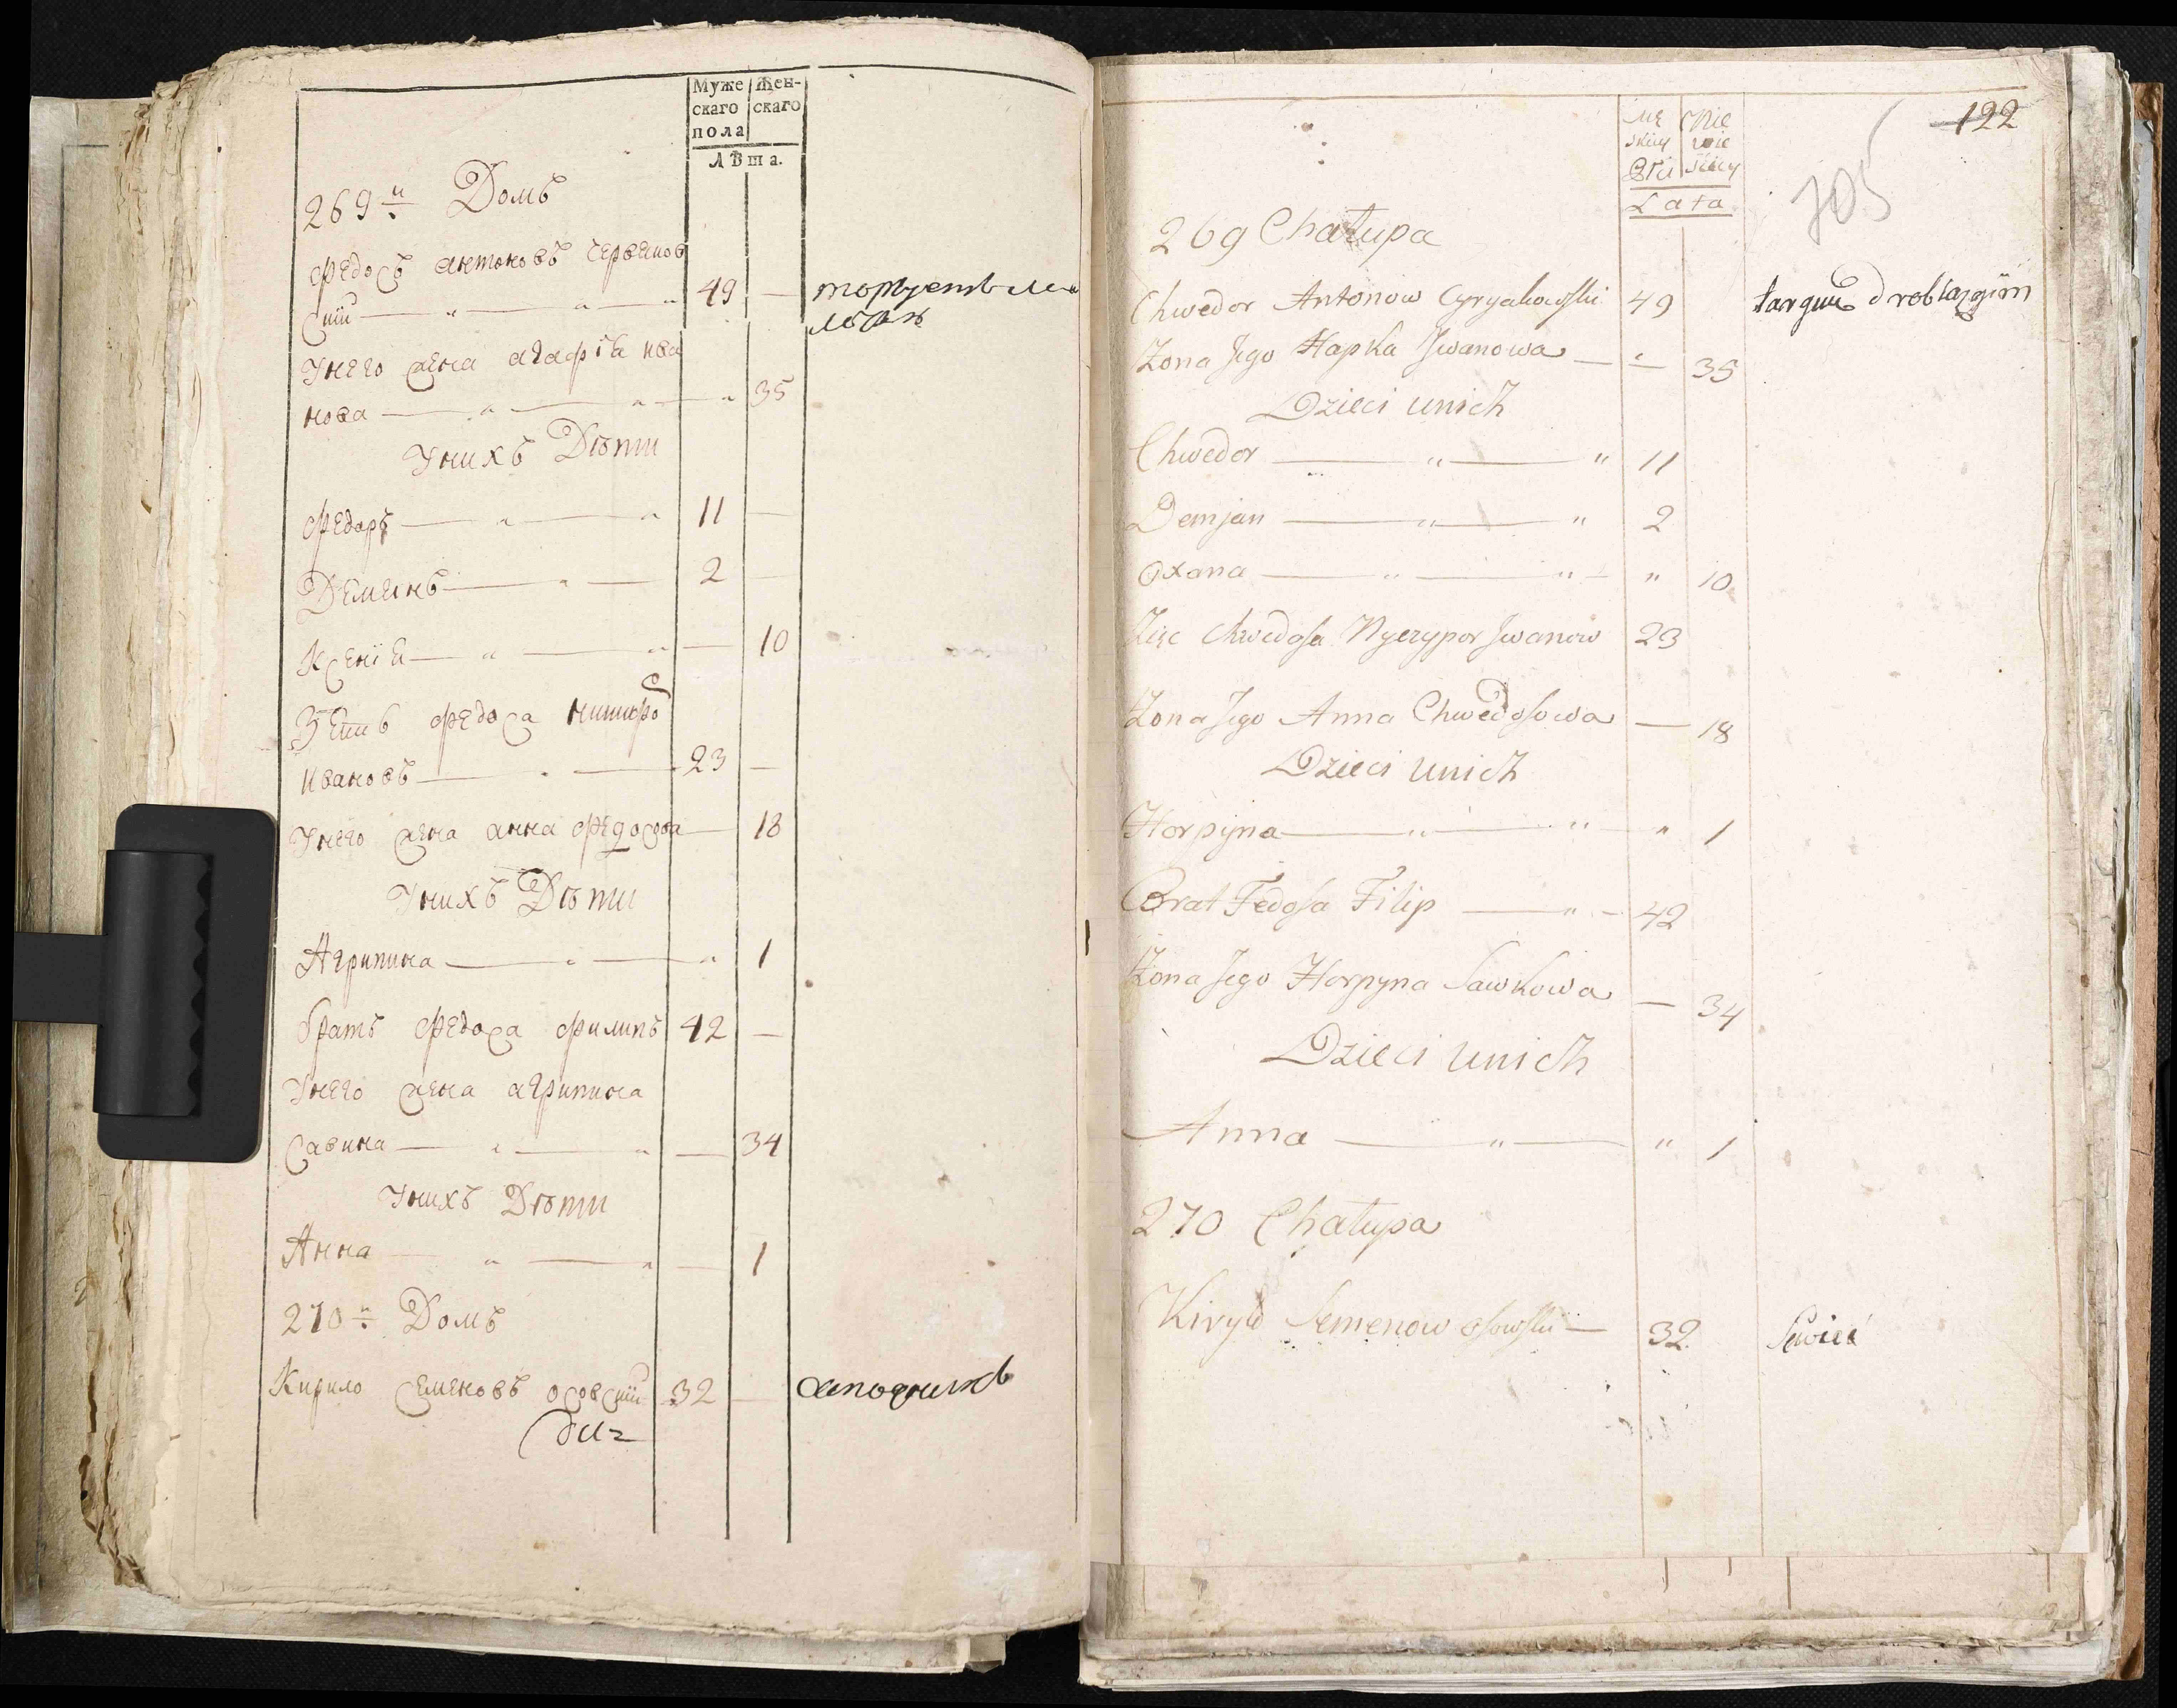 Муже Жен-
скаго скаго
пола
Лѣта.
269й Домъ
Федосъ антоновъ Черваков
ский 49 — торгуетъ ме
лочю
Унего жена агафіа ива
нова — 35
Унихъ Дѣти
Федоръ — 11 —
Демянъ — 2 —
Ксеніа — 10
Зять федоса ничипоръ
ивановъ — 23 —
Унего жена анна федосова — 18
Унихъ Дѣти
Агрипина — 1
братъ федоса филипъ 42 —
Унего жена агрипина
Савина — 34
Унихъ Дѣти
Анна — 1
270й Домъ
Кирило Семеновъ осовский 32 — сапожникъ
122
705
Lata
269 Chałupa
Chwedor Antonow Cyryakowski 49 targuie drobiazgiem
Żona Jego Hapka Jwanowa — 35
Dzieci unich
Chwedor — " — " 11
Demjan — " — " 2
Oxana — " — " — " 10
Zięc Chwedosa Nyczypor Jwanow 23
Żona Jego Anna Chwedosowa — 18
Dzieci unich
Horpyna — " — " — " 1
Brat Fedosa Filip — " — 42
Żona Jego Horpyna Sawkowa — 34
Dzieci unich
Anna — " — " 1
270 Chałupa
Kiryło Semenow osowski — 32 Szwiec